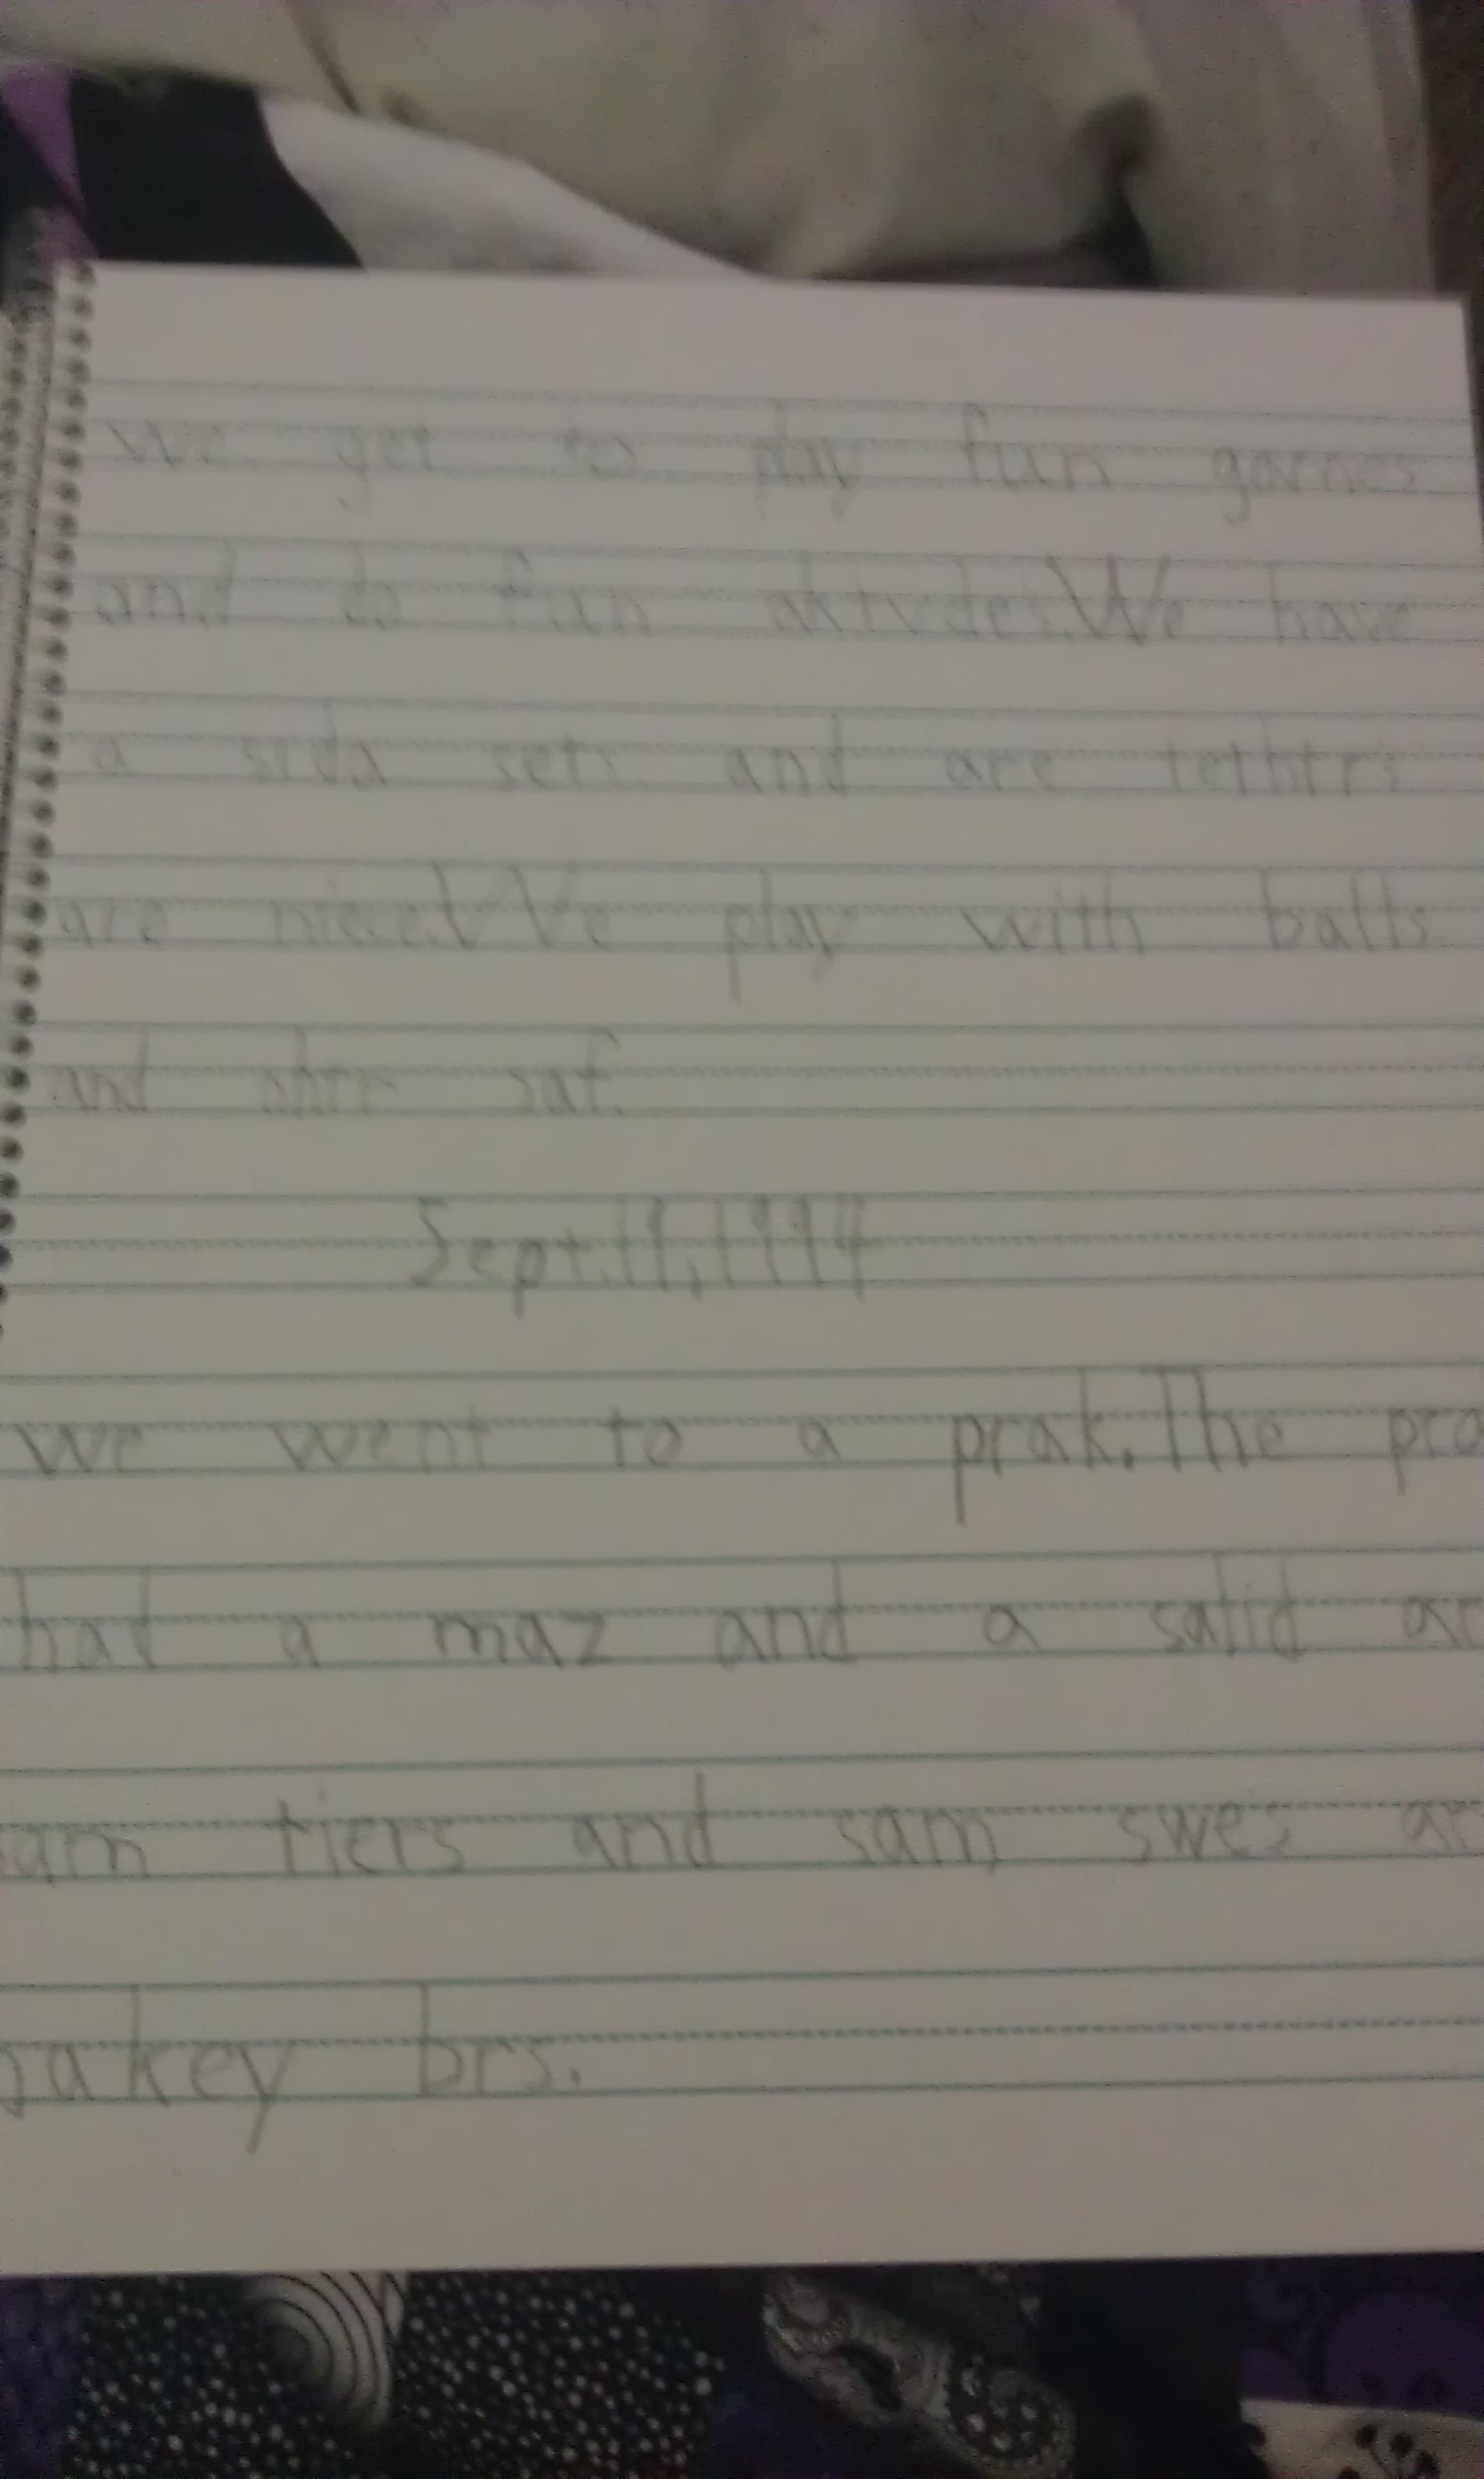 we get to play fun games
and do fun aktvdes. We have
a seda sets and are tethtrs
are nice. We play with balls
and ohtr saf.
Sept. 19, 1994
We went to a prak. The pra
had a maz and a salid an
am tiers and sam swes an
akey brs.